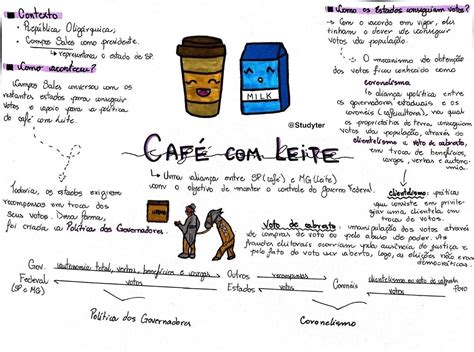 Contexto
• República Oligárquica;
• Campos Sales como presidente.
↳ representava o estado de SP.
Como aconteceu?
Campos Sales conversou com os
restantes estados para conseguir
votos e apoio para a política
do café com leite.
Todavia, os estados exigiram
recompensas em troca dos
seus votos. Dessa forma,
foi criada a Política dos Governadores.
MILK
@Studyter
CAFÉ COM LEITE
↳ Uma aliança entre SP (café) e MG (leite)
com o objetivo de manter o controle do Governo Federal.
Como os estados conseguiam votos?
↳ Com o acordo em vigor, eles
tinham o dever de conseguir
votos da população.
↳ O mecanismo de obtenção
dos votos ficou conhecido como
coronelismo
↳ aliança política entre
os governadores estaduais e os
coronéis (cafeicultores), na qual
os proprietários de terra conseguiam
votos da população, através do
clientelismo e voto de cabresto,
em troca de benefícios,
cargos, verbas e autono-
mia.
clientelismo: prática
que consiste em privile-
giar uma clientela em
troca de votos.
Voto de cabresto: manipulação dos votos através
de compras do voto ou pelo abuso de poder. As
fraudes eleitorais ocorriam pela ausência de justiça e
pelo fato do voto ser aberto, logo, as eleições não eram
democráticas.
Gov.
Federal
(SP e MG)
autonomia total, verbas, benefícios e cargos
votos
Outros
Estados
recompensas
votos
Coronéis
clientelismo ou voto de cabresto
votos
Política dos Governadores
Coronelismo